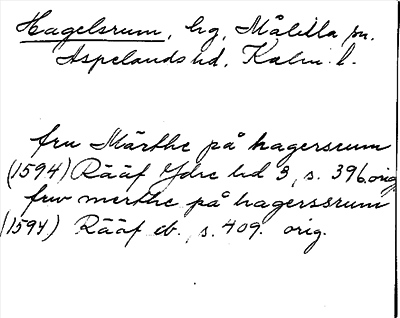 Hagelsrum, hg, Målilla sn.
Aspelands hd. Kalm. l.
fru Märthe på hagersrum
(1594) Rääf Ydre hd 3, s. 396. orig
frw merthe på hagerssrum
(1594) Rääf ib. s. 409. orig.